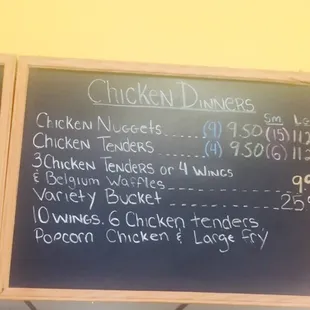 Chicken Dinners
Sm La
Chicken Nuggets...... (9) 9.50 (15) 11
Chicken Tenders...... (4) 9.50 (6) 11
3 Chicken Tenders or 4 wings
& Belgium Waffles
Variety Bucket 25
10 wings. 6 Chicken tenders.
Popcorn Chicken & Large fry